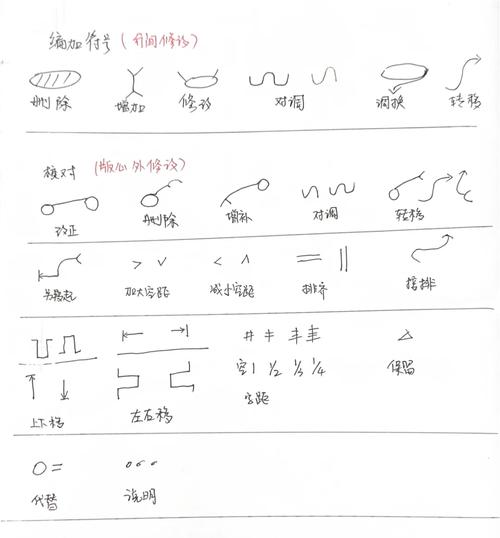 编加符号（行间修改）
删除 增加 修改 对调 调换 转移
校对（版心外修改）
改正 删除 增补 对调 转移
另起 加大空距 减小空距 排齐 接排
上下移 左右移 空1 1/2 1/3 1/4 保留
字距
代替 说明